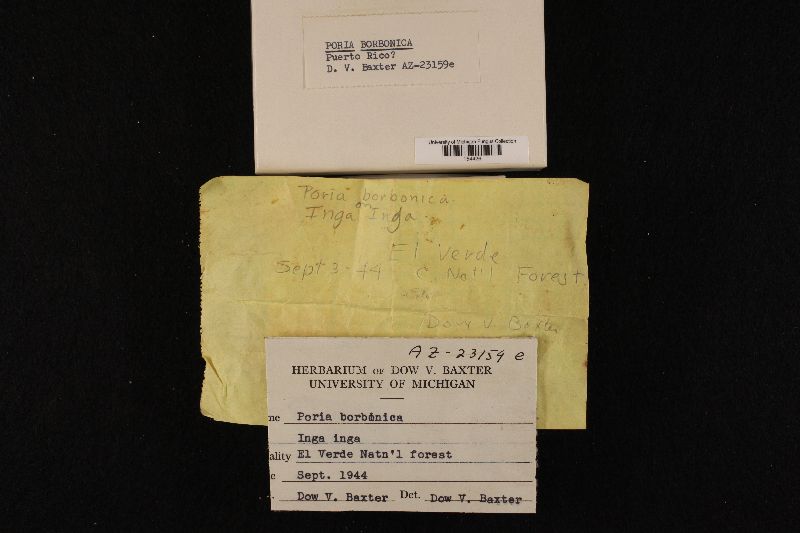 PORIA BORBONICA
Puerto Rico?
D. V. Baxter AZ-23159e
University of Michigan Fungus Collection
Poria borbonica
on
Inga Inga
El Verde
Sept 3-44 C. Nat'l Forest
Dow V. Baxter
AZ-23159 e
HERBARIUM OF DOW V. BAXTER
UNIVERSITY OF MICHIGAN
me Poria borbonica
Inga inga
ality El Verde Natn'l forest
e Sept. 1944
Dow V. Baxter Det. Dow V. Baxter